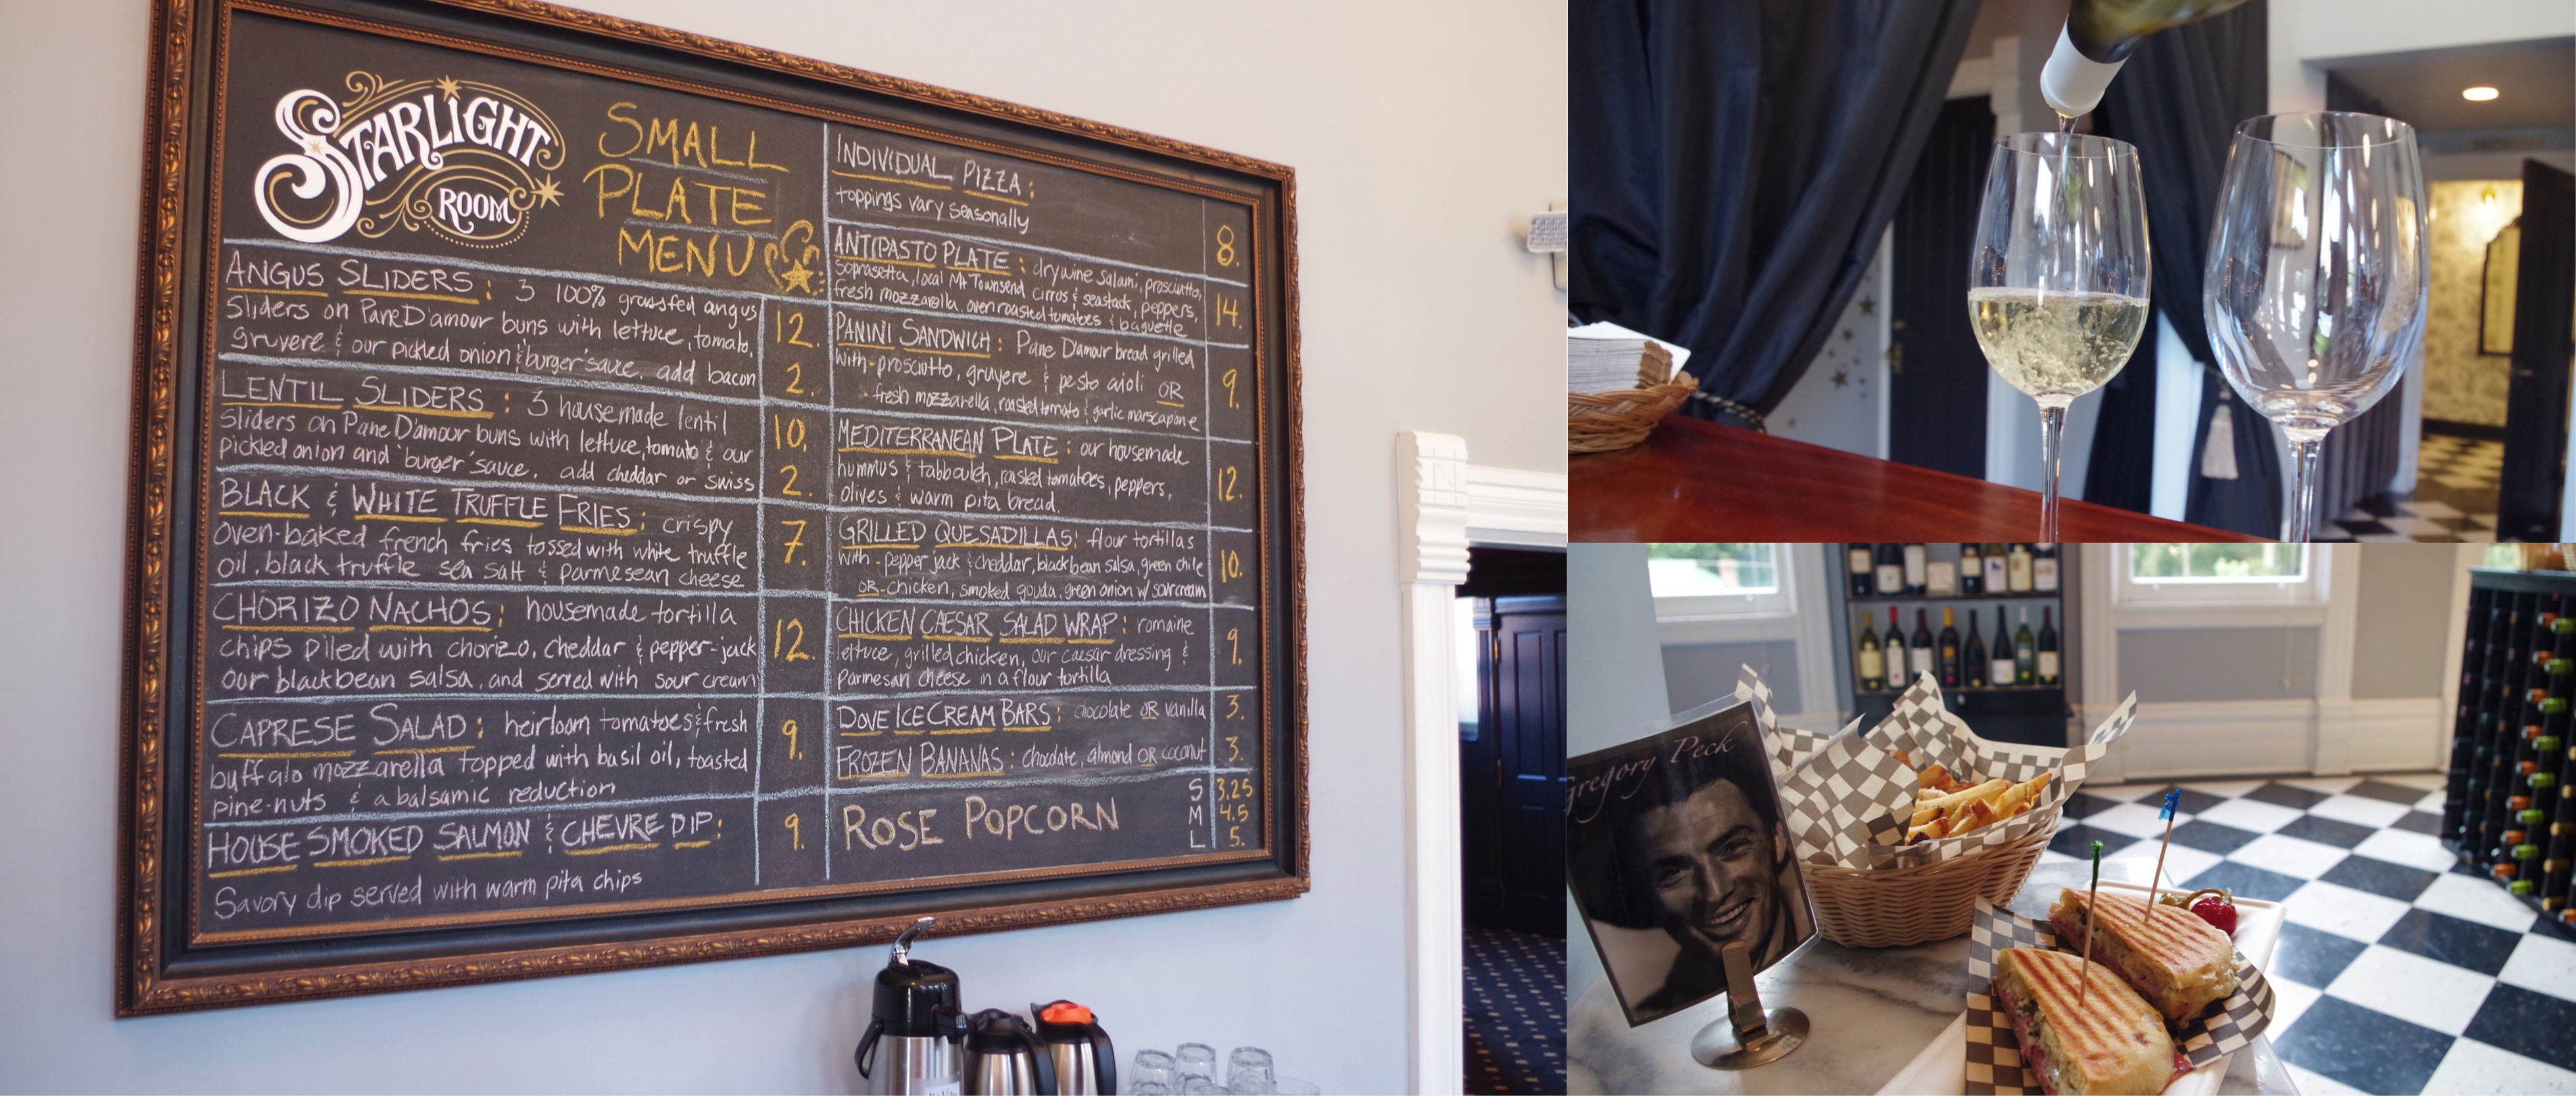 STARLIGHT
ROOM
SMALL
PLATE
MENU
ANGUS SLIDERS: 3 100% grassfed angus
sliders on PaneD'amour buns with lettuce, tomato,
gruyere & our pickled onion & "burger" sauce. add bacon
12.
2.
LENTIL SLIDERS: 3 housemade lentil
sliders on Pane D'amour buns with lettuce, tomato & our
pickled onion and "burger" sauce. add cheddar or swiss
10.
2.
BLACK & WHITE TRUFFLE FRIES: crispy
oven-baked french fries tossed with white truffle
oil, black truffle sea salt & parmesean cheese
7.
CHORIZO NACHOS: housemade tortilla
chips piled with chorizo, cheddar & pepper-jack
our blackbean salsa, and served with sour cream
12.
CAPRESE SALAD: heirloom tomatoes & fresh
buffalo mozzarella topped with basil oil, toasted
pine-nuts & a balsamic reduction
9.
HOUSE SMOKED SALMON & CHEVRE DIP:
Savory dip served with warm pita chips
9.
INDIVIDUAL PIZZA:
toppings vary seasonally
8.
ANTIPASTO PLATE: dry wine salami, prosciutto,
soprasetta, local Mt Townsend cirrus & seastack, peppers,
fresh mozzarella, oven roasted tomatoes & baguette
14.
PANINI SANDWICH: Pane D'amour bread grilled
with - prosciutto, gruyere & pesto aioli OR
- fresh mozzarella, roasted tomato & garlic marscapone
9.
MEDITERRANEAN PLATE: our housemade
hummus & tabbouleh, roasted tomatoes, peppers,
olives & warm pita bread.
12.
GRILLED QUESADILLAS: flour tortillas
with - pepper jack & cheddar, black bean salsa, green chile
OR - chicken, smoked gouda, green onion w/ sour cream
10.
CHICKEN CAESAR SALAD WRAP: romaine
lettuce, grilled chicken, our caesar dressing &
parmesan cheese in a flour tortilla
9.
DOVE ICE CREAM BARS: chocolate OR vanilla 3.
FROZEN BANANAS: chocolate, almond OR coconut 3.
ROSE POPCORN
S 3.25
M 4.5
L 5.
Gregory Peck